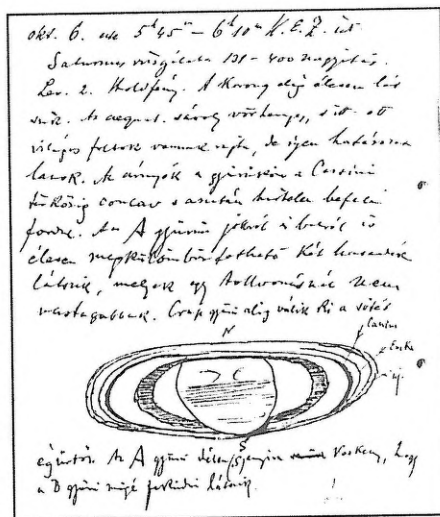 okt. 6. este 5ʰ 45ᵐ – 6ʰ 10ᵐ K.E.Z. ist.
Saturnus vizsgálata 131 – 400 nagyítás.
Lev. 2. Holdfény. A korong alig élesen lát
szik. Az aequat. sávoly vörhenyes, s itt-ott
világos foltok vannak rajta, de igen határozat
lanok. Az árnyék a gyűrűkön a Cassini
törközig concav s azután hirtelen befelé
fordul. Az A gyűrűn jobbról s balról is
élesen megkülönböztethető két hasadék
látszik, melyek egy tollvonásnál nem
vastagabbak. Crap gyűrű alig válik ki a sötét
N
Cassini
Encke
új
S
égürtől. Az A gyűrű
a B gyűrű mögé látszik.